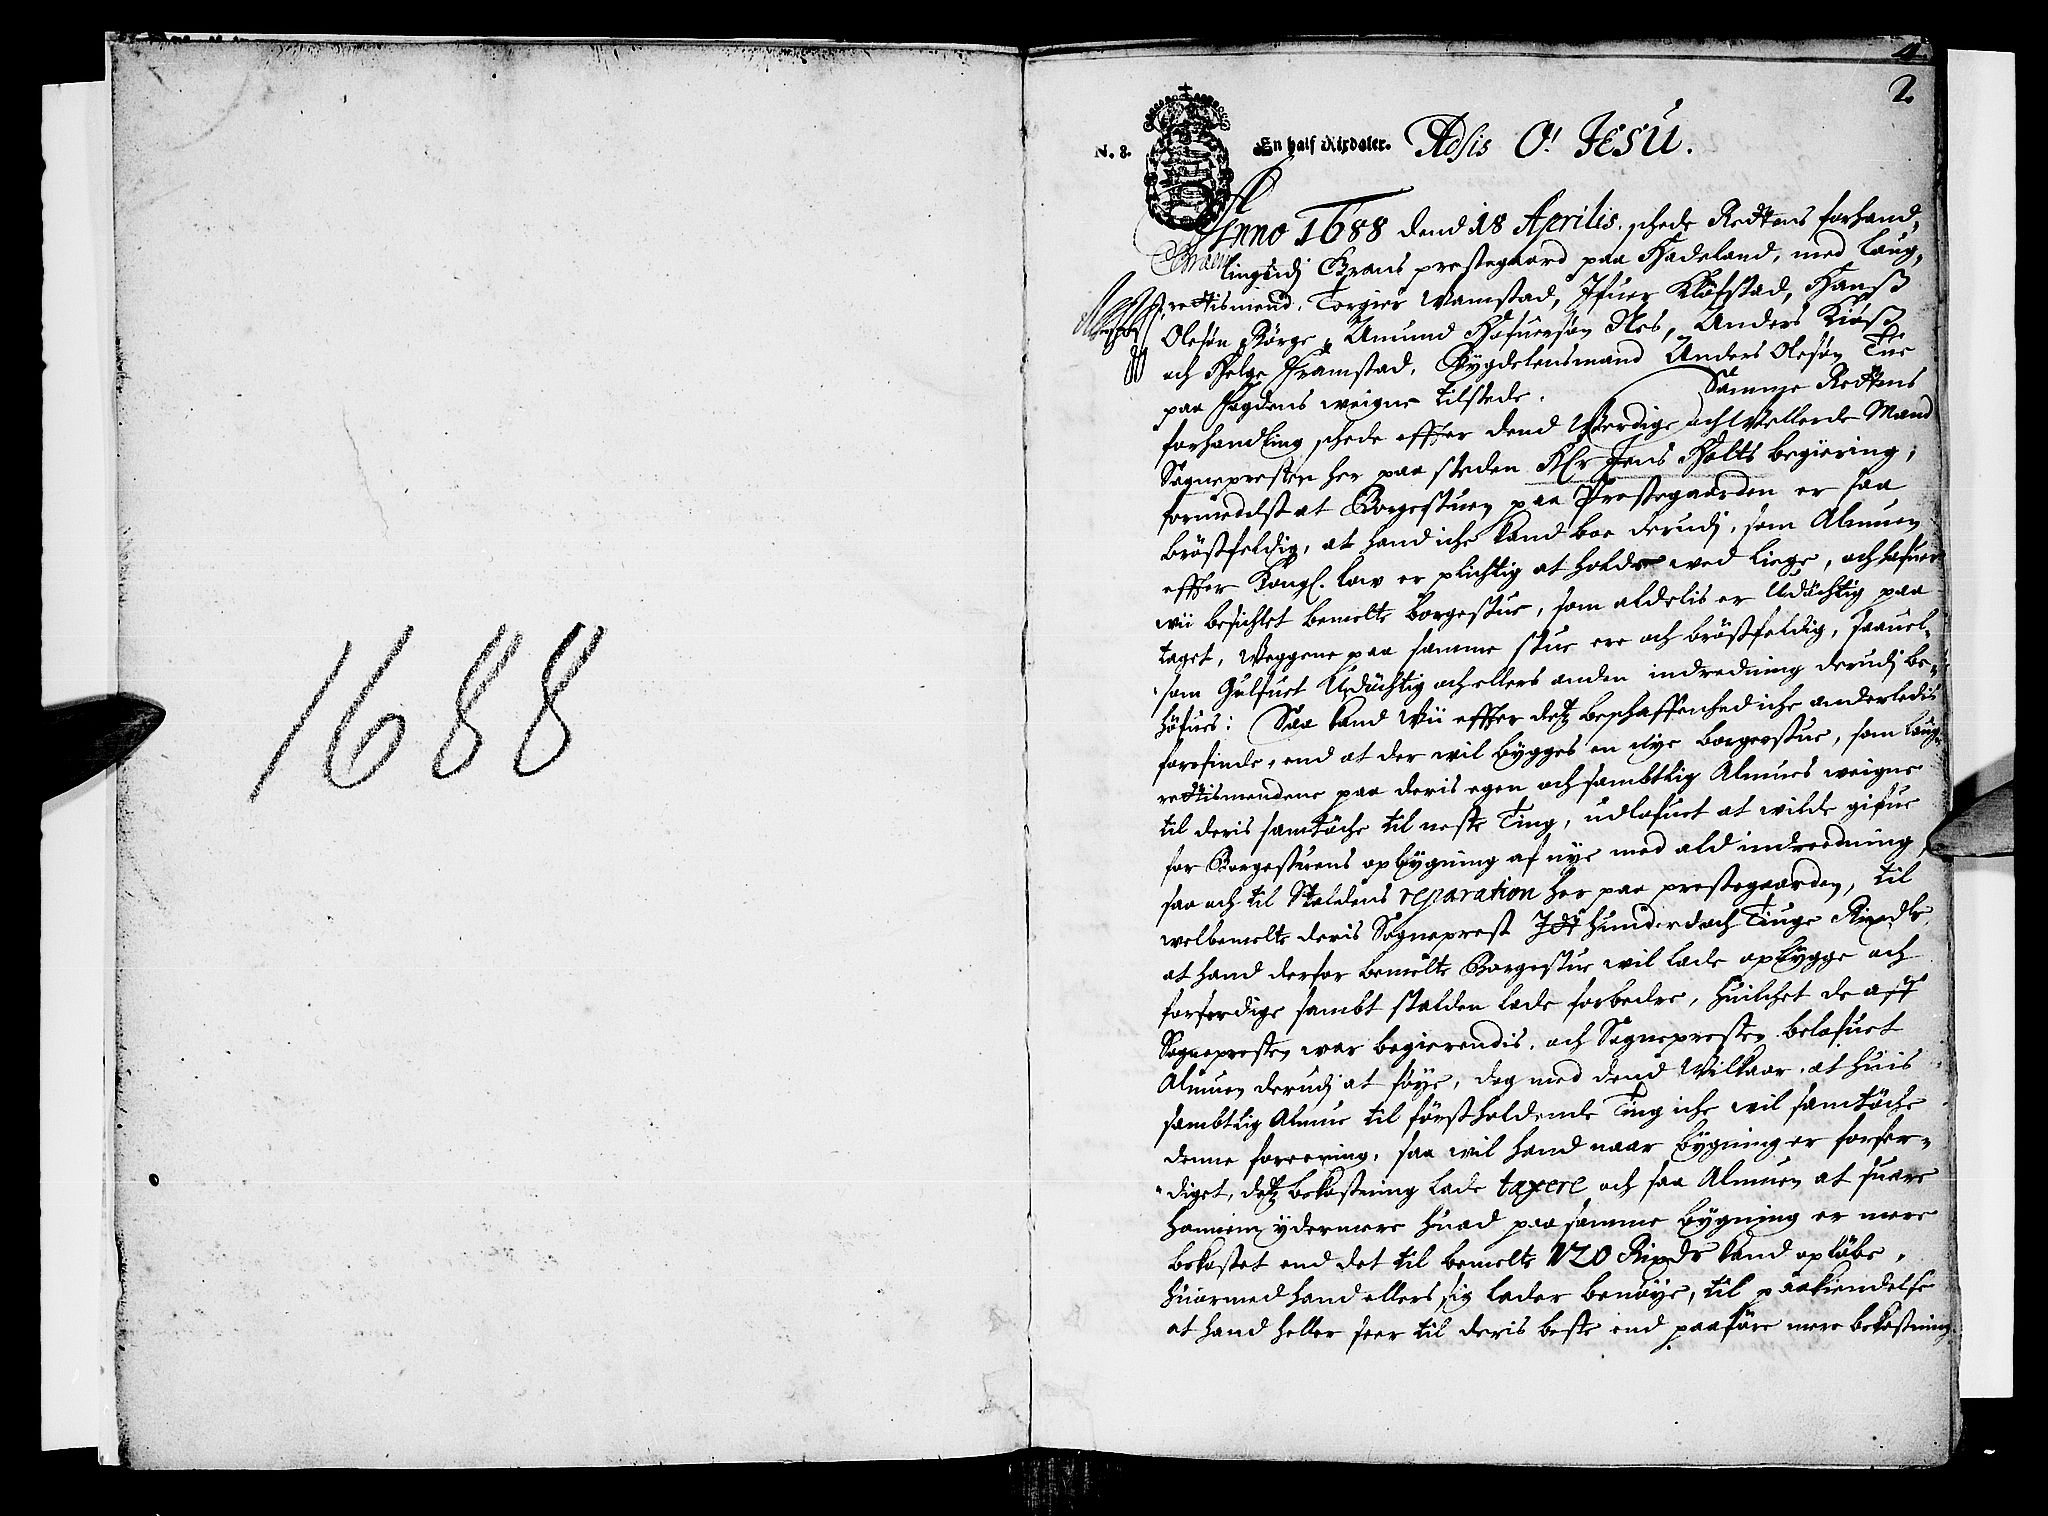 1688
4.
2.
N. 8. En half Rixdaler. Adsis O! JESU.
Anno 1688 dend 18 Aprilis. schede Rettens forhand,
lingudj Grans prestegaard paa Hadeland, med Laug,
rettismend. Torgier Wamstad, Jfuer Kløfstad, Hanss
Olesøn Børge, Amund Hafuersøn Nes, Anders
och Helge Framstad, Bygdelensmand Anders Olesøn Tue
paa fogdens weigne tilstede. Samme Rettens
forhandling schede effter dend Werdige och Wellerde Mand
Sognepresten her paa steden Hr Jens Holts begiering;
formedelst at Borgestuen paa Prestegaarden er saa
bröstfeldig, at hand iche kand boe derudj, som Almuen
effter Kongl. low er plichtig at holde wed liege, och hafuer
wii besichtet bemelte borgestue, som aldelis er Udüchtig paa
taget, Weggene paa samme stue ere och bröstfeldig, saauel,
som Gulfuet Udüchtig och ellers anden indredning derudj be,
höfues: Saa kand Wii effter detz beschaffenhed iche anderledis
forefinde, end at der wil bygges en Nye borgerstue, som laug,
rettismendene paa deris egen och sambtlig Almues weigne
til deris samtöche til neste Ting, udlofuet at wilde gifue
for Borgestuens opbygning af nye med ald indreedning,
saa och til Staldens reparation her paa prestegaarden, til
welbemelte deris Sogneprest Jdt hunderd och Tiuge Rixdlr,
at hand derfor bemelte Borgestue wil lade opbygge och
forferdige sambt stalden lade forbedre, huilchet de aff
Sognepresten war begierendis. och Sognepresten belofuet
Almuen derudj at føye, dog med dend Wilkaar, at huis
sambtlig Almue til først holdende Ting iche wil samtöche
denne foreening, saa wil hand naar bygning er forfer,
diget, detz bekostning lade taxere och saa Almuen at suare
hannem ydermere huad paa samme bygning er mere
bekostet end det til bemelte 120 Rixdr kand opløbe,
huormed hand ellers sig lader benöye, til paakiendelse
at hand heller seer til deris beste end paaføre mere bekostning.